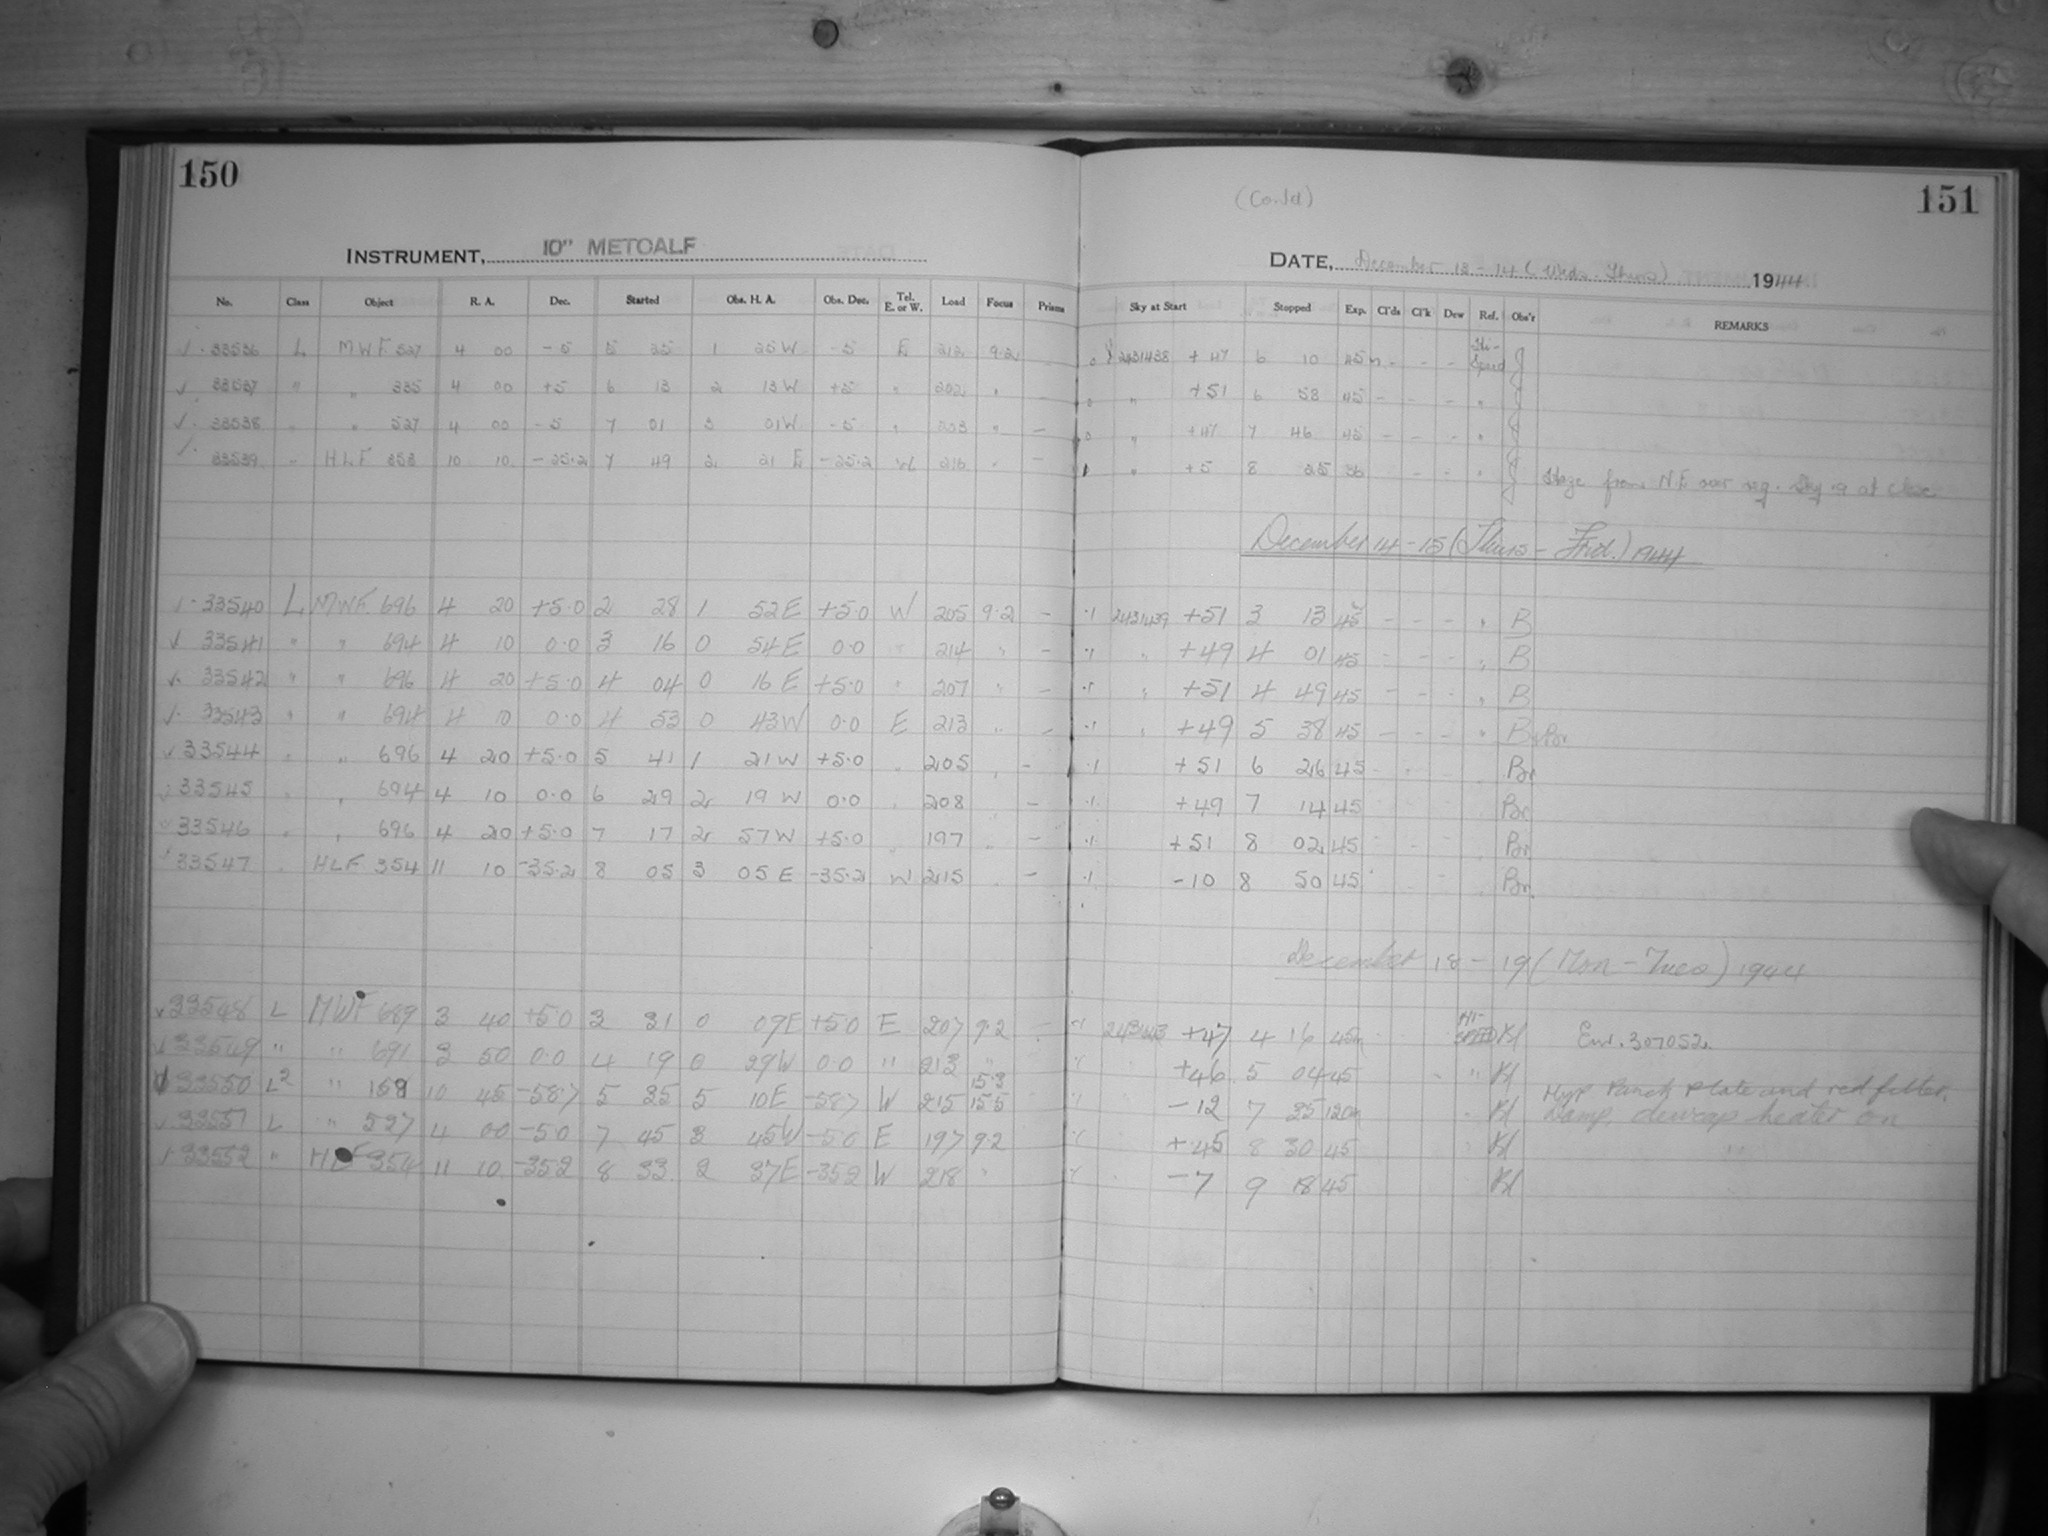 150
INSTRUMENT, 10" METCALF
No. Class Object R. A. Dec. Started Obs. H. A. Obs. Dec. Tel. E. or W. Load Focus Prisms
33536 L MWF 527 4 00 -5 5 25 1 25 W -5 E 212 9.2
33537 " " 335 4 00 +5 6 13 2 13 W +5 " 202 "
33538 " " 527 4 00 -5 7 01 3 01 W -5 " 203 " -
33539 " HLF 353 10 10 -25.2 7 49 2 21 E -25.2 W 216 " -
33540 L MWF 696 4 20 +5.0 2 28 1 52 E +5.0 W 205 9.2 -
33541 " " 694 4 10 0.0 3 16 0 54 E 0.0 " 214 " -
33542 " " 696 4 20 +5.0 4 04 0 16 E +5.0 " 207 " -
33543 " " 694 4 10 0.0 4 53 0 43 W 0.0 E 213 " -
33544 " " 696 4 20 +5.0 5 41 1 21 W +5.0 " 205 " -
33545 " " 694 4 10 0.0 6 29 2 19 W 0.0 " 208 -
33546 " " 696 4 20 +5.0 7 17 2 57 W +5.0 197 " -
33547 " HLF 354 11 10 -35.2 8 05 3 05 E -35.2 W 215 " -
33548 L MWF 689 3 40 +5.0 3 31 0 09 E +5.0 E 207 9.2 -
33549 " " 691 3 50 0.0 4 19 0 29 W 0.0 " 213 "
33550 L2 " 158 10 45 -58.7 5 35 5 10 E -58.7 W 215 15.3 15.5
33551 L " 527 4 00 -5.0 7 45 3 45 W -5.0 E 197 9.2
33552 " HLF 354 11 10 -35.2 8 33 2 37 E -35.2 W 218 "
151
(Co.td)
DATE, December 13 - 14 (Weds - Thurs) 1944
Sky at Start Stopped Exp. Cl'ds Cl'k Dew Ref. Obs'r REMARKS
0 2431438 + 47 6 10 45m - - - Hi-Speed
0 " +51 6 58 45 - - - "
0 " +47 7 46 45 - - - "
" +5 8 25 36 - - " Haze from N.E. over reg. Sky .9 at close
December 14 - 15 (Thurs - Frid.) 1944
.1 2431439 +51 3 13 45 - - - " B
.1 " +49 4 01 45 - - - " B
.1 " +51 4 49 45 - - - " B
.1 " +49 5 38 45 - - - " B & Br
.1 +51 6 26 45 - - - Br
.1 +49 7 14 45 Br
.1 +51 8 02 45 - - - Br
.1 -10 8 50 45 - Br
December 18 - 19 (Mon - Tues) 1944
+47 4 16 45m HI-SPEED Kl Em. 307052.
+46 5 04 45 " Kl
-12 7 35 120m Kl Hyp Panch Plate and red filter.
Damp, dewcap heater on
+45 8 30 45 Kl "
-7 9 18 45 Kl